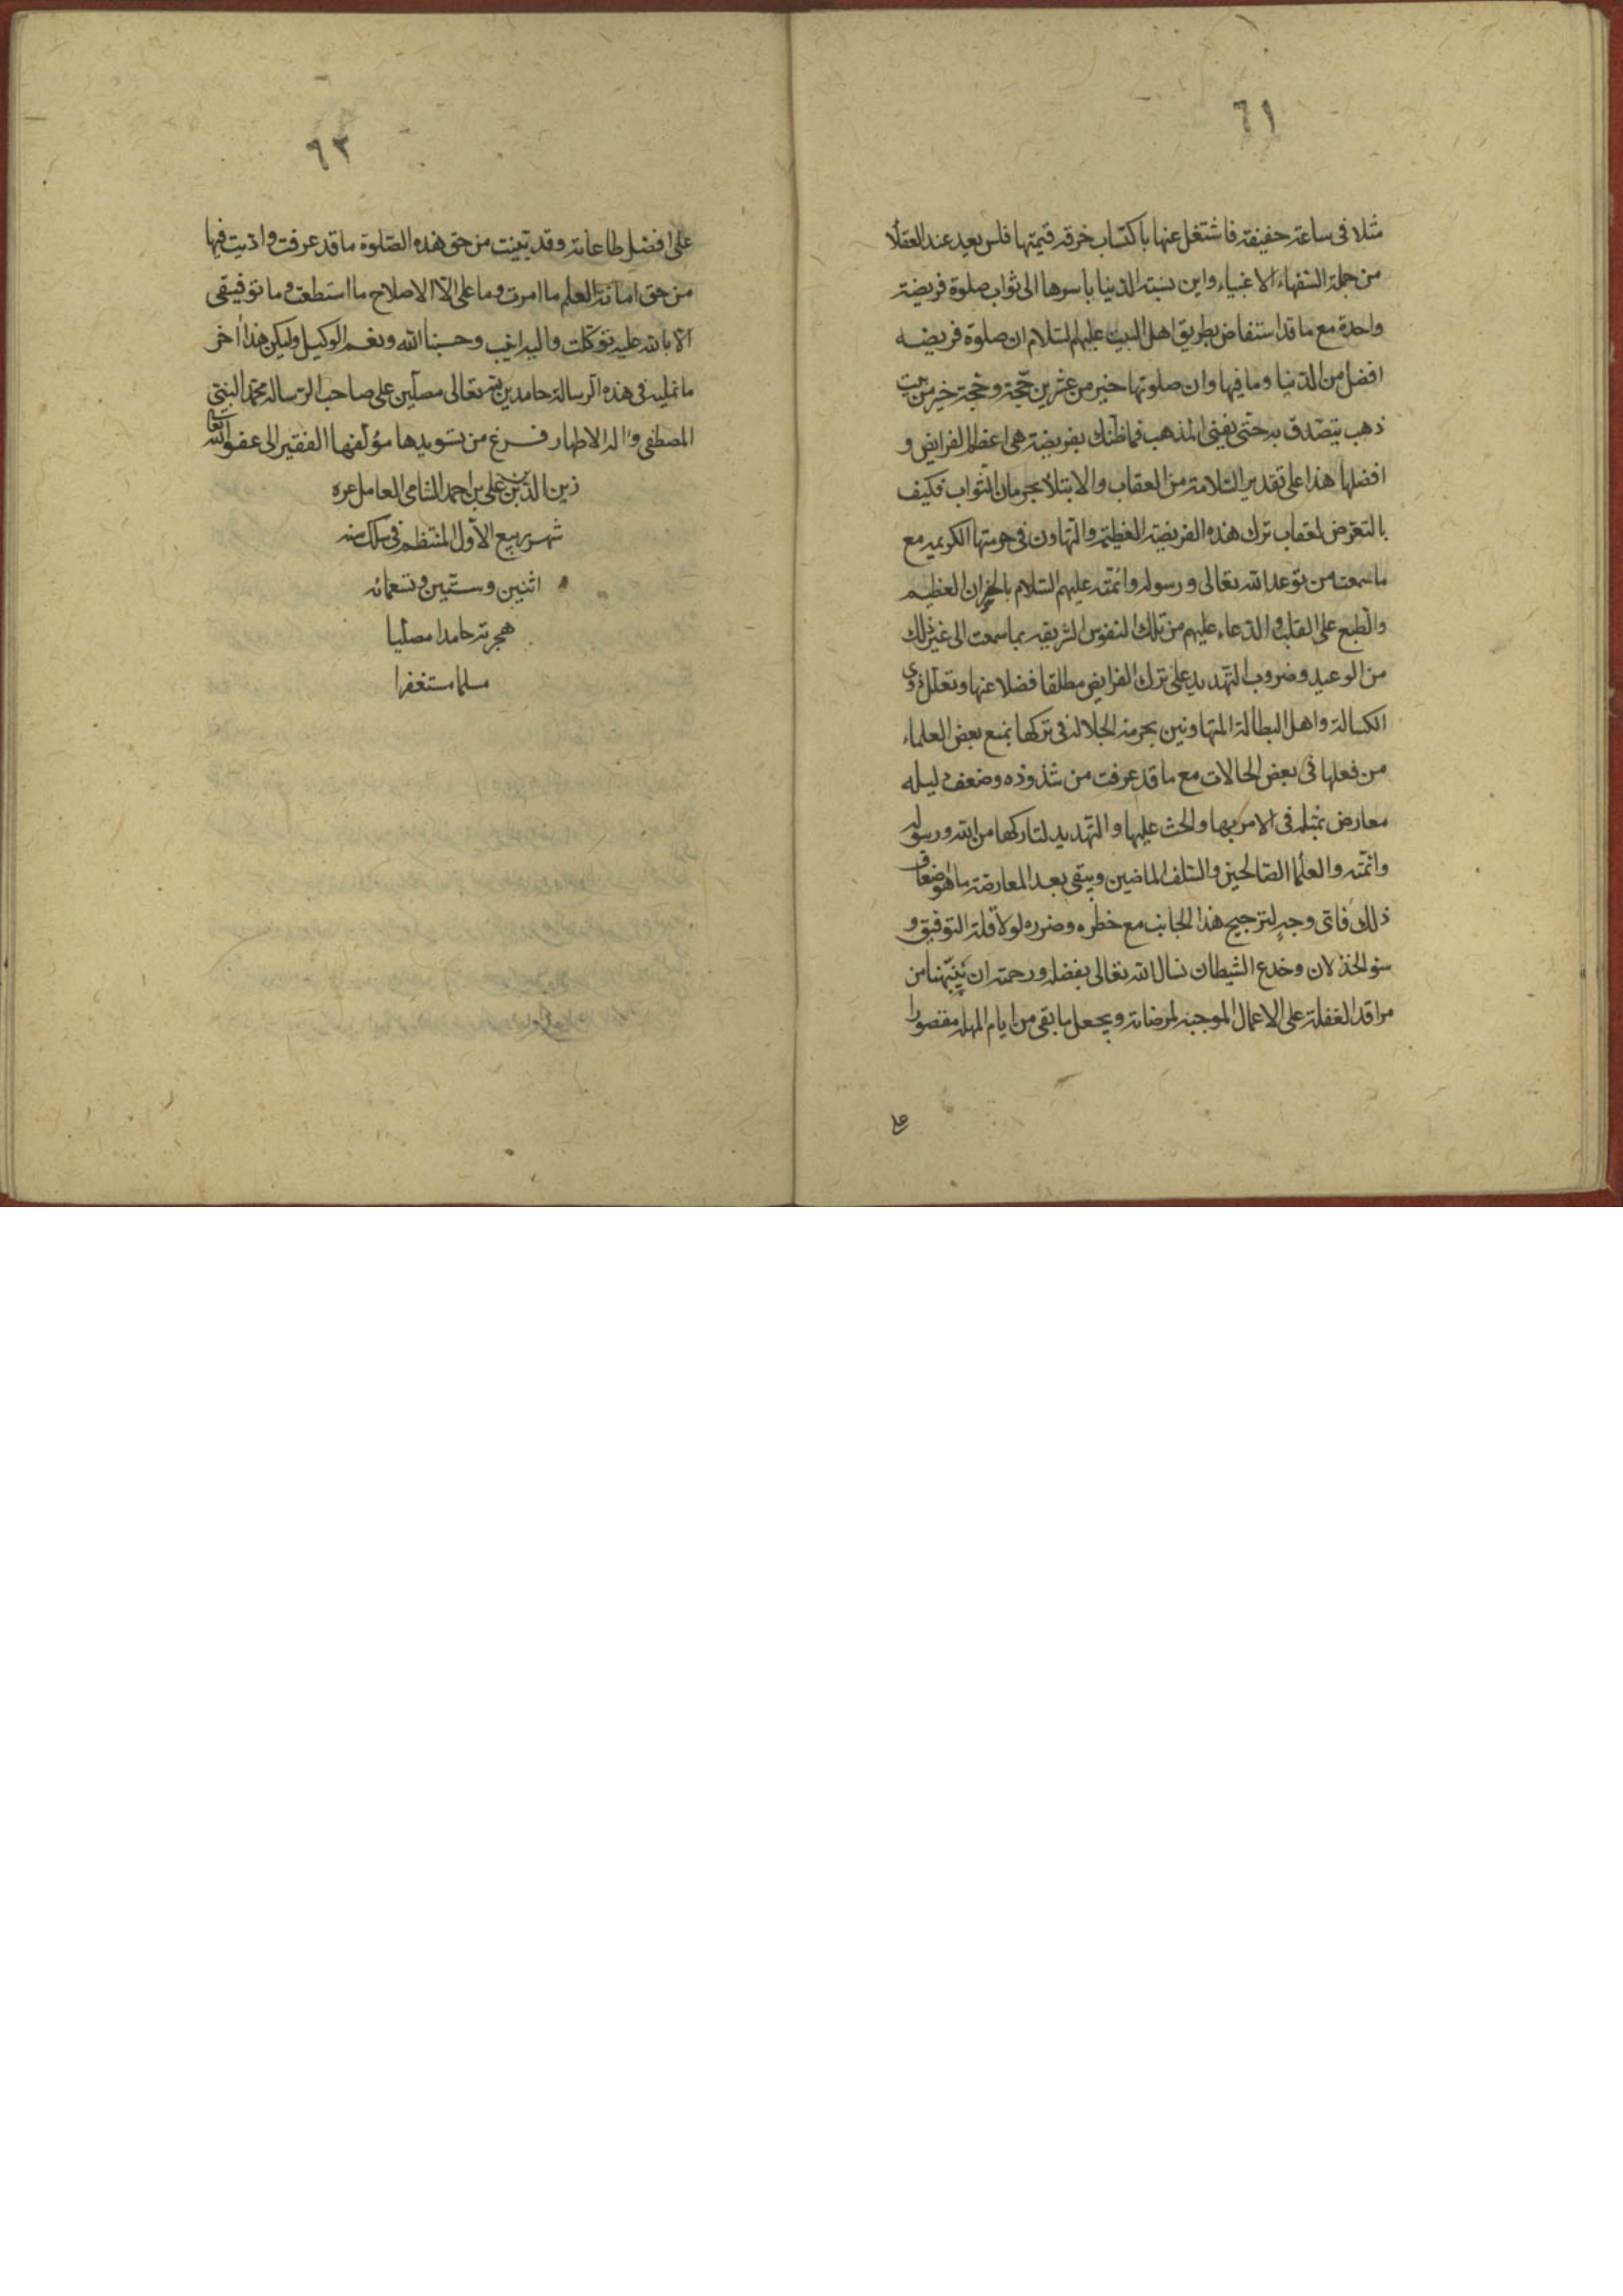 ٦١
مثلا فى ساعة خفيفة فاشتغل عنها باكتساب خرقه قيمتها فلس بعيد عند العقلا
من جملة السفهاء الاغبياء واين نسبة الدنيا باسرها الى ثواب صلوة فريضة
واحدة مع ما قد استفاض بطريق اهل البيت عليهم السلام ان صلوة فريضه
افضل من الدنيا وما فيها وان صلوتها خير من عشرين حجة وحجة خير من بيت
ذهب يتصدق به حتى يفنى الذهب فما ظنك بفريضة هى اعظم الفرايض و
افضلها هذا على تقدير السلامة من العقاب والابتلاء بحرمان الثواب فكيف
بالتعرض لعقاب ترك هذه الفريضة العظيمة والتهاون فى حرمتها الكريمه مع
ما سمعت من توعد الله تعالى ورسوله وائمته عليهم السلام بالخسران العظيم
والطبع على القلب والدعاء عليهم من تلك النفوس الشريفه بما سمعت الى غير ذلك
من الوعيد وضروب التهديد على ترك الفرايض مطلقا فضلا عنها وتعلل ذوى
الكسالة واهل البطالة المتهاونين بحرمة الجلالة فى تركها بمنع بعض العلماء
من فعلها فى بعض الحالات مع ما قد عرفت من شذوذه وضعف دليله
معارض بمثله فى الامر بها والحث عليها والتهديد لتاركها من الله ورسوله
وائمته والعلما الصالحين والسلف الماضين ويبقى بعد المعارضة ما هو اضعاف
ذلك فاى وجه لترجيح هذا الجانب مع خطره وضرره لولا قلة التوفيق و
سؤ الخذلان وخدع الشيطان نسال الله تعالى بفضله ورحمته ان ينبهنا من
مراقد الغفلة على الاعمال الموجبة لمرضاته ويجعل ما بقى من ايام المهلة مقصورا
على
٦٣
على افضل طاعاته وقد تبينت من حق هذه الصلوة ما قد عرفت واديت فيها
من حق امانة العلم ما امرت وما على الا الاصلاح ما استطعت وما توفيقى
الا بالله عليه توكلت واليه انيب وحسبنا الله ونعم الوكيل وليكن هذا اخر
ما نمليه فى هذه الرسالة حامدين لله تعالى مصلين على صاحب الرساله محمد النبى
المصطفى واله الاطهار فرغ من تسويدها مؤلفها الفقير الى عفو الله تعالى
زين الدين بن على بن احمد الشامى العاملى غره
شهر ربيع الاول المنتظم فى سلك سنه
اثنين وستين وتسعمائه
هجرية حامدا مصليا
مسلما مستغفرا